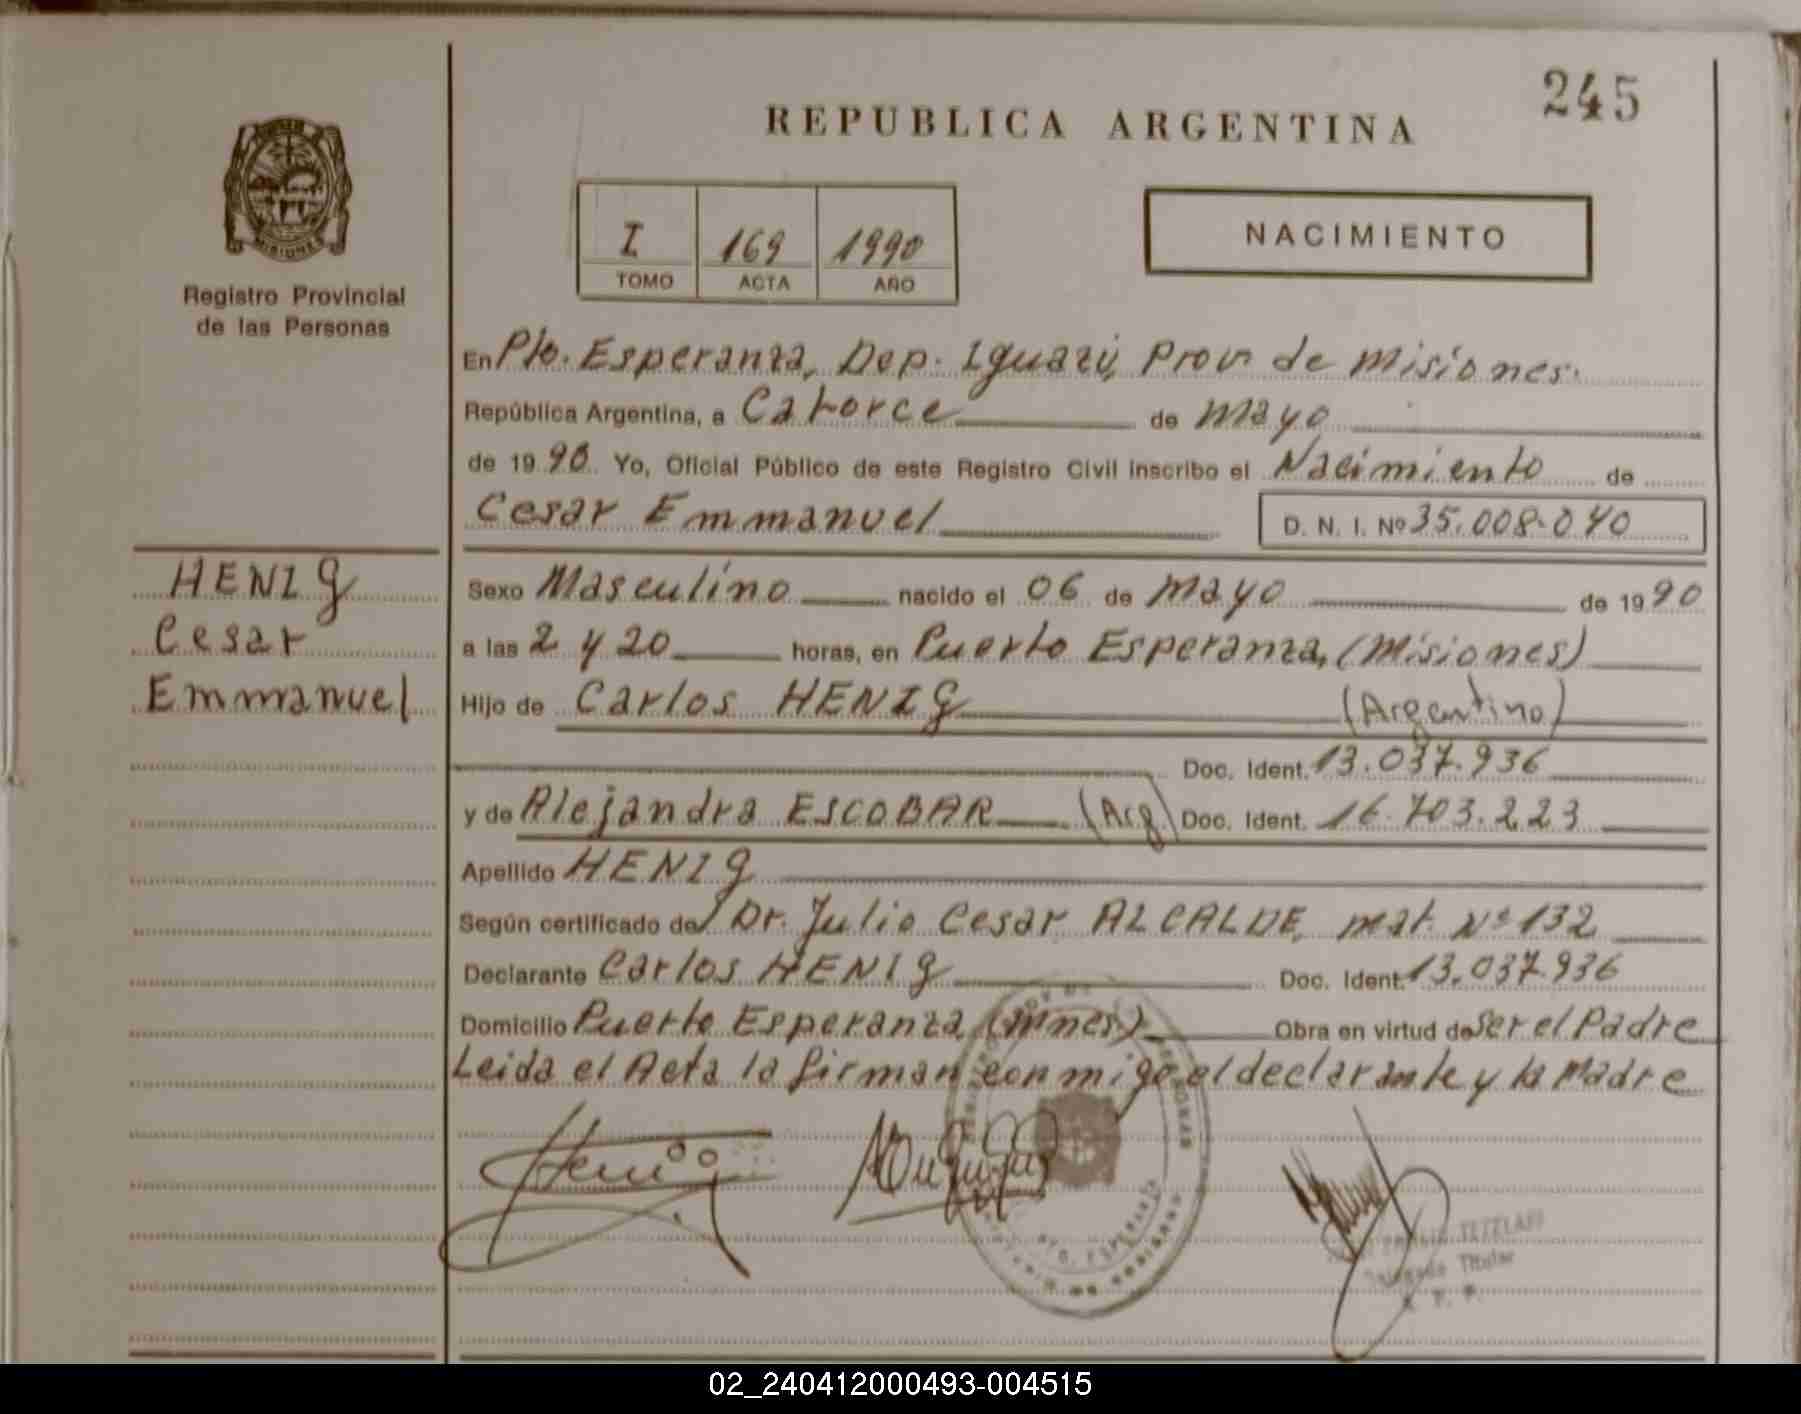 245
REPUBLICA ARGENTINA
MISIONES
Registro Provincial
de las Personas
I 169 1990
TOMO ACTA AÑO
NACIMIENTO
En Pto. Esperanza, Dep. Iguazú, Prov. de Misiones.
República Argentina, a Catorce de Mayo
de 1990 Yo, Oficial Público de este Registro Civil inscribo el Nacimiento de
Cesar Emmanuel D. N. I. Nº 35.008.040
HENIG
Cesar
Emmanuel
Sexo Masculino nacido el 06 de Mayo de 1990
a las 2 y 20 horas, en Puerto Esperanza, (Misiones)
Hijo de Carlos HENIG (Argentino)
Doc. Ident. 13.037.936
y de Alejandra ESCOBAR (Arg) Doc. Ident. 16.703.223
Apellido HENIG
Según certificado de/ Dr. Julio Cesar ALCALDE, mat. Nº 132
Declarante Carlos HENIG Doc. Ident. 13.037.936
Domicilio Puerto Esperanza, (Mnes) Obra en virtud de Ser el Padre
Leida el Acta la firman conmigo el declarante y la Madre
Henig
PTO. ESPERANZA
TETZLAFF
Delegado Titular
02_240412000493-004515